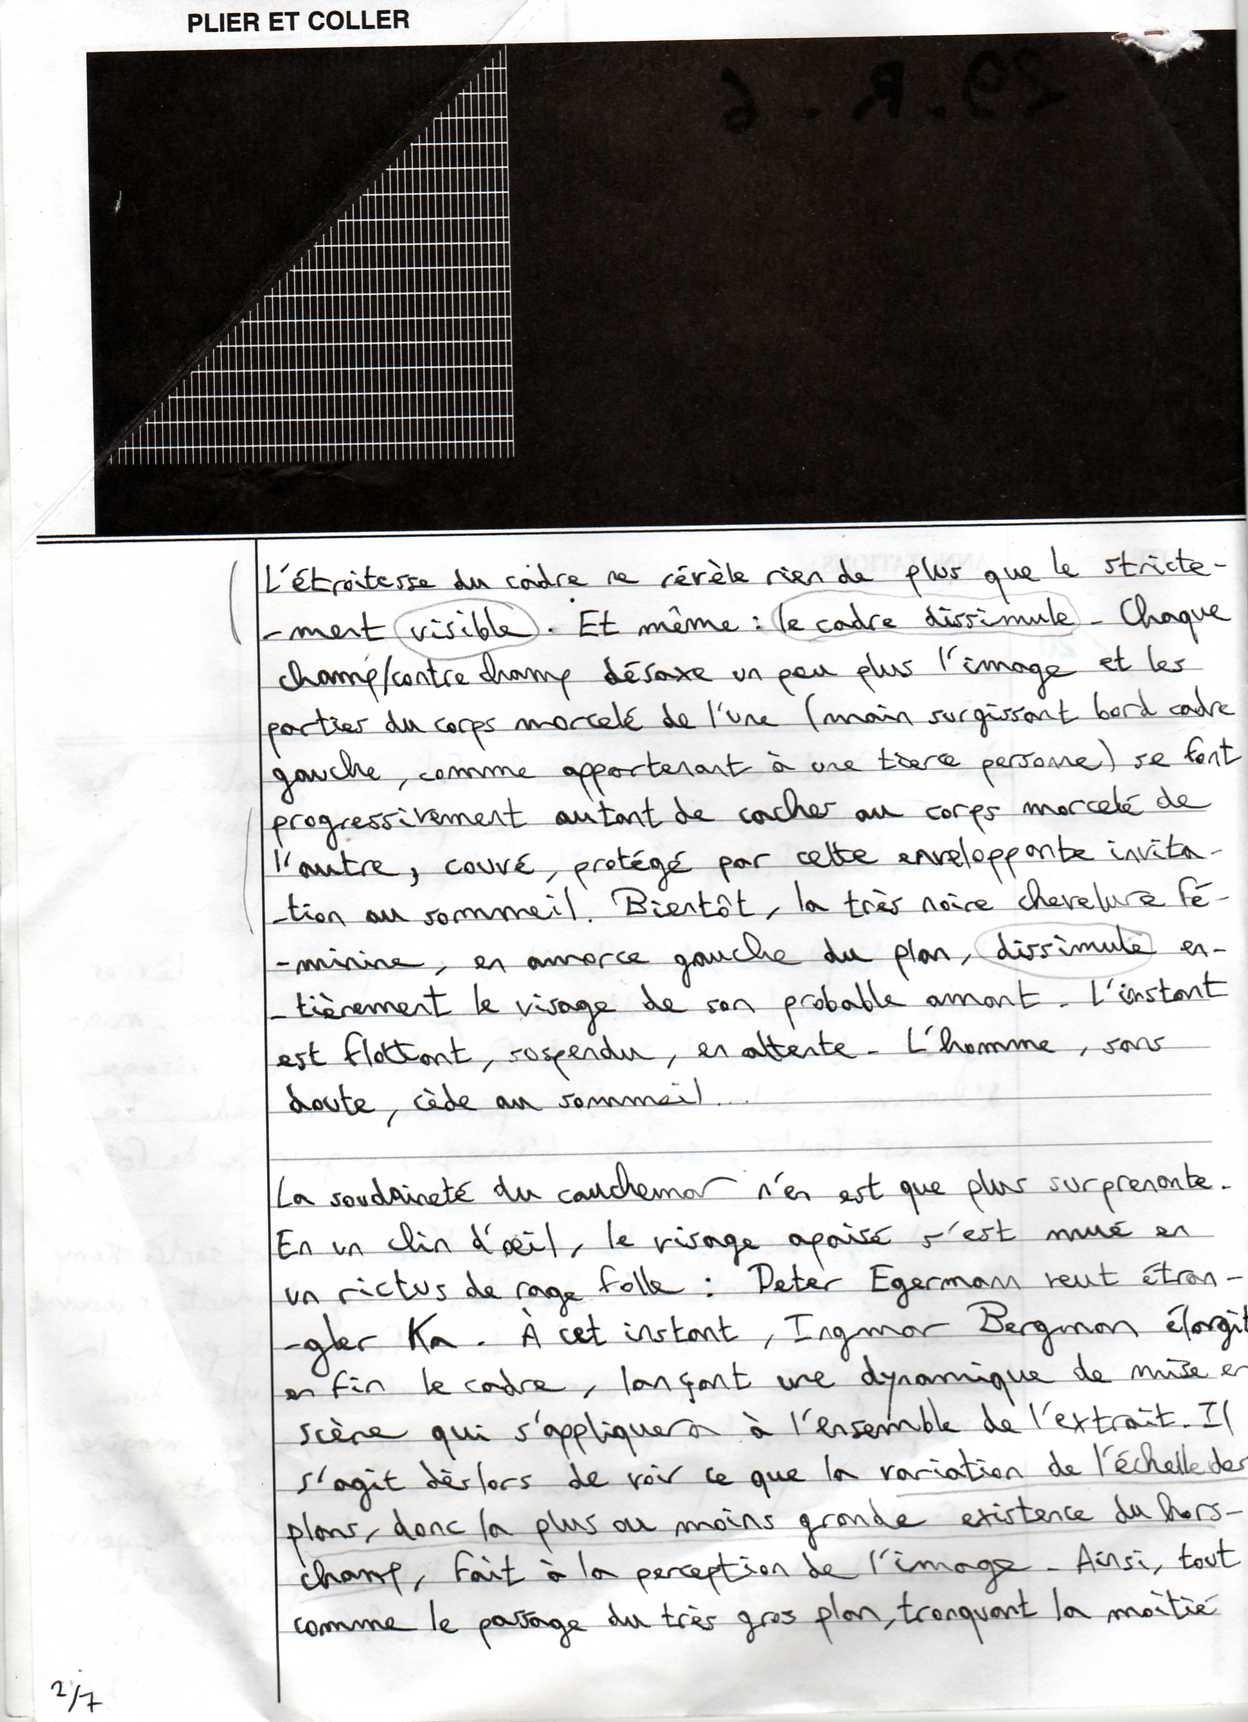 PLIER ET COLLER
29.R.6
L'étroitesse du cadre ne révèle rien de plus que le stricte-
-ment visible. Et même : le cadre dissimule. Chaque
champ/contre champ désaxe un peu plus l'image et les
parties du corps morcelé de l'une (main surgissant bord cadre
gauche, comme appartenant à une tierce personne) se font
progressivement autant de caches au corps morcelé de
l'autre, couvé, protégé par cette enveloppante invita-
-tion au sommeil. Bientôt, la très noire chevelure fé-
-minine, en amorce gauche du plan, dissimule en-
-tièrement le visage de son probable amant. L'instant
est flottant, suspendu, en attente. L'homme, sans
doute, cède au sommeil...
La soudaineté du cauchemar n'en est que plus surprenante.
En un clin d'œil, le visage apaisé s'est mué en
un rictus de rage folle : Peter Egermann veut étran-
-gler Ka. À cet instant, Ingmar Bergman élargit
en fin le cadre, lançant une dynamique de mise en
scène qui s'appliquera à l'ensemble de l'extrait. Il
s'agit dès lors de voir ce que la variation de l'échelle des
plans, donc la plus ou moins grande existence du hors-
champ, fait à la perception de l'image. Ainsi, tout
comme le passage du très gros plan, tronquant la moitié
2/7